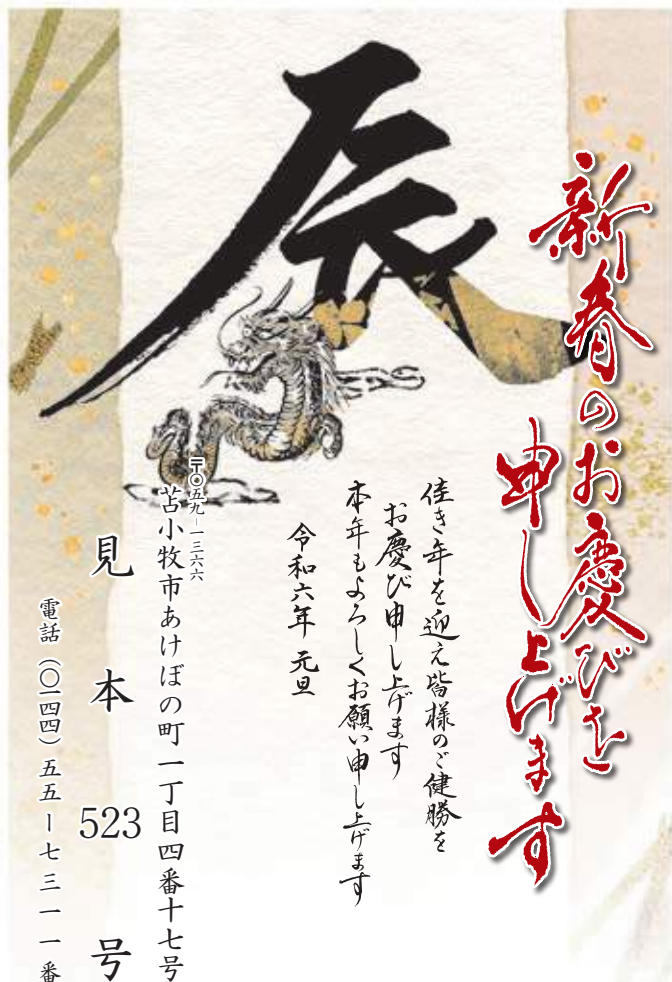 辰
新春のお慶びを
申し上げます
佳き年を迎え皆様のご健勝を
お慶び申し上げます
本年もよろしくお願い申し上げます
令和六年 元旦
〒〇五九-一三六六
苫小牧市あけぼの町一丁目四番十七号
見本523号
電話（〇一四四）五五-七三一一番